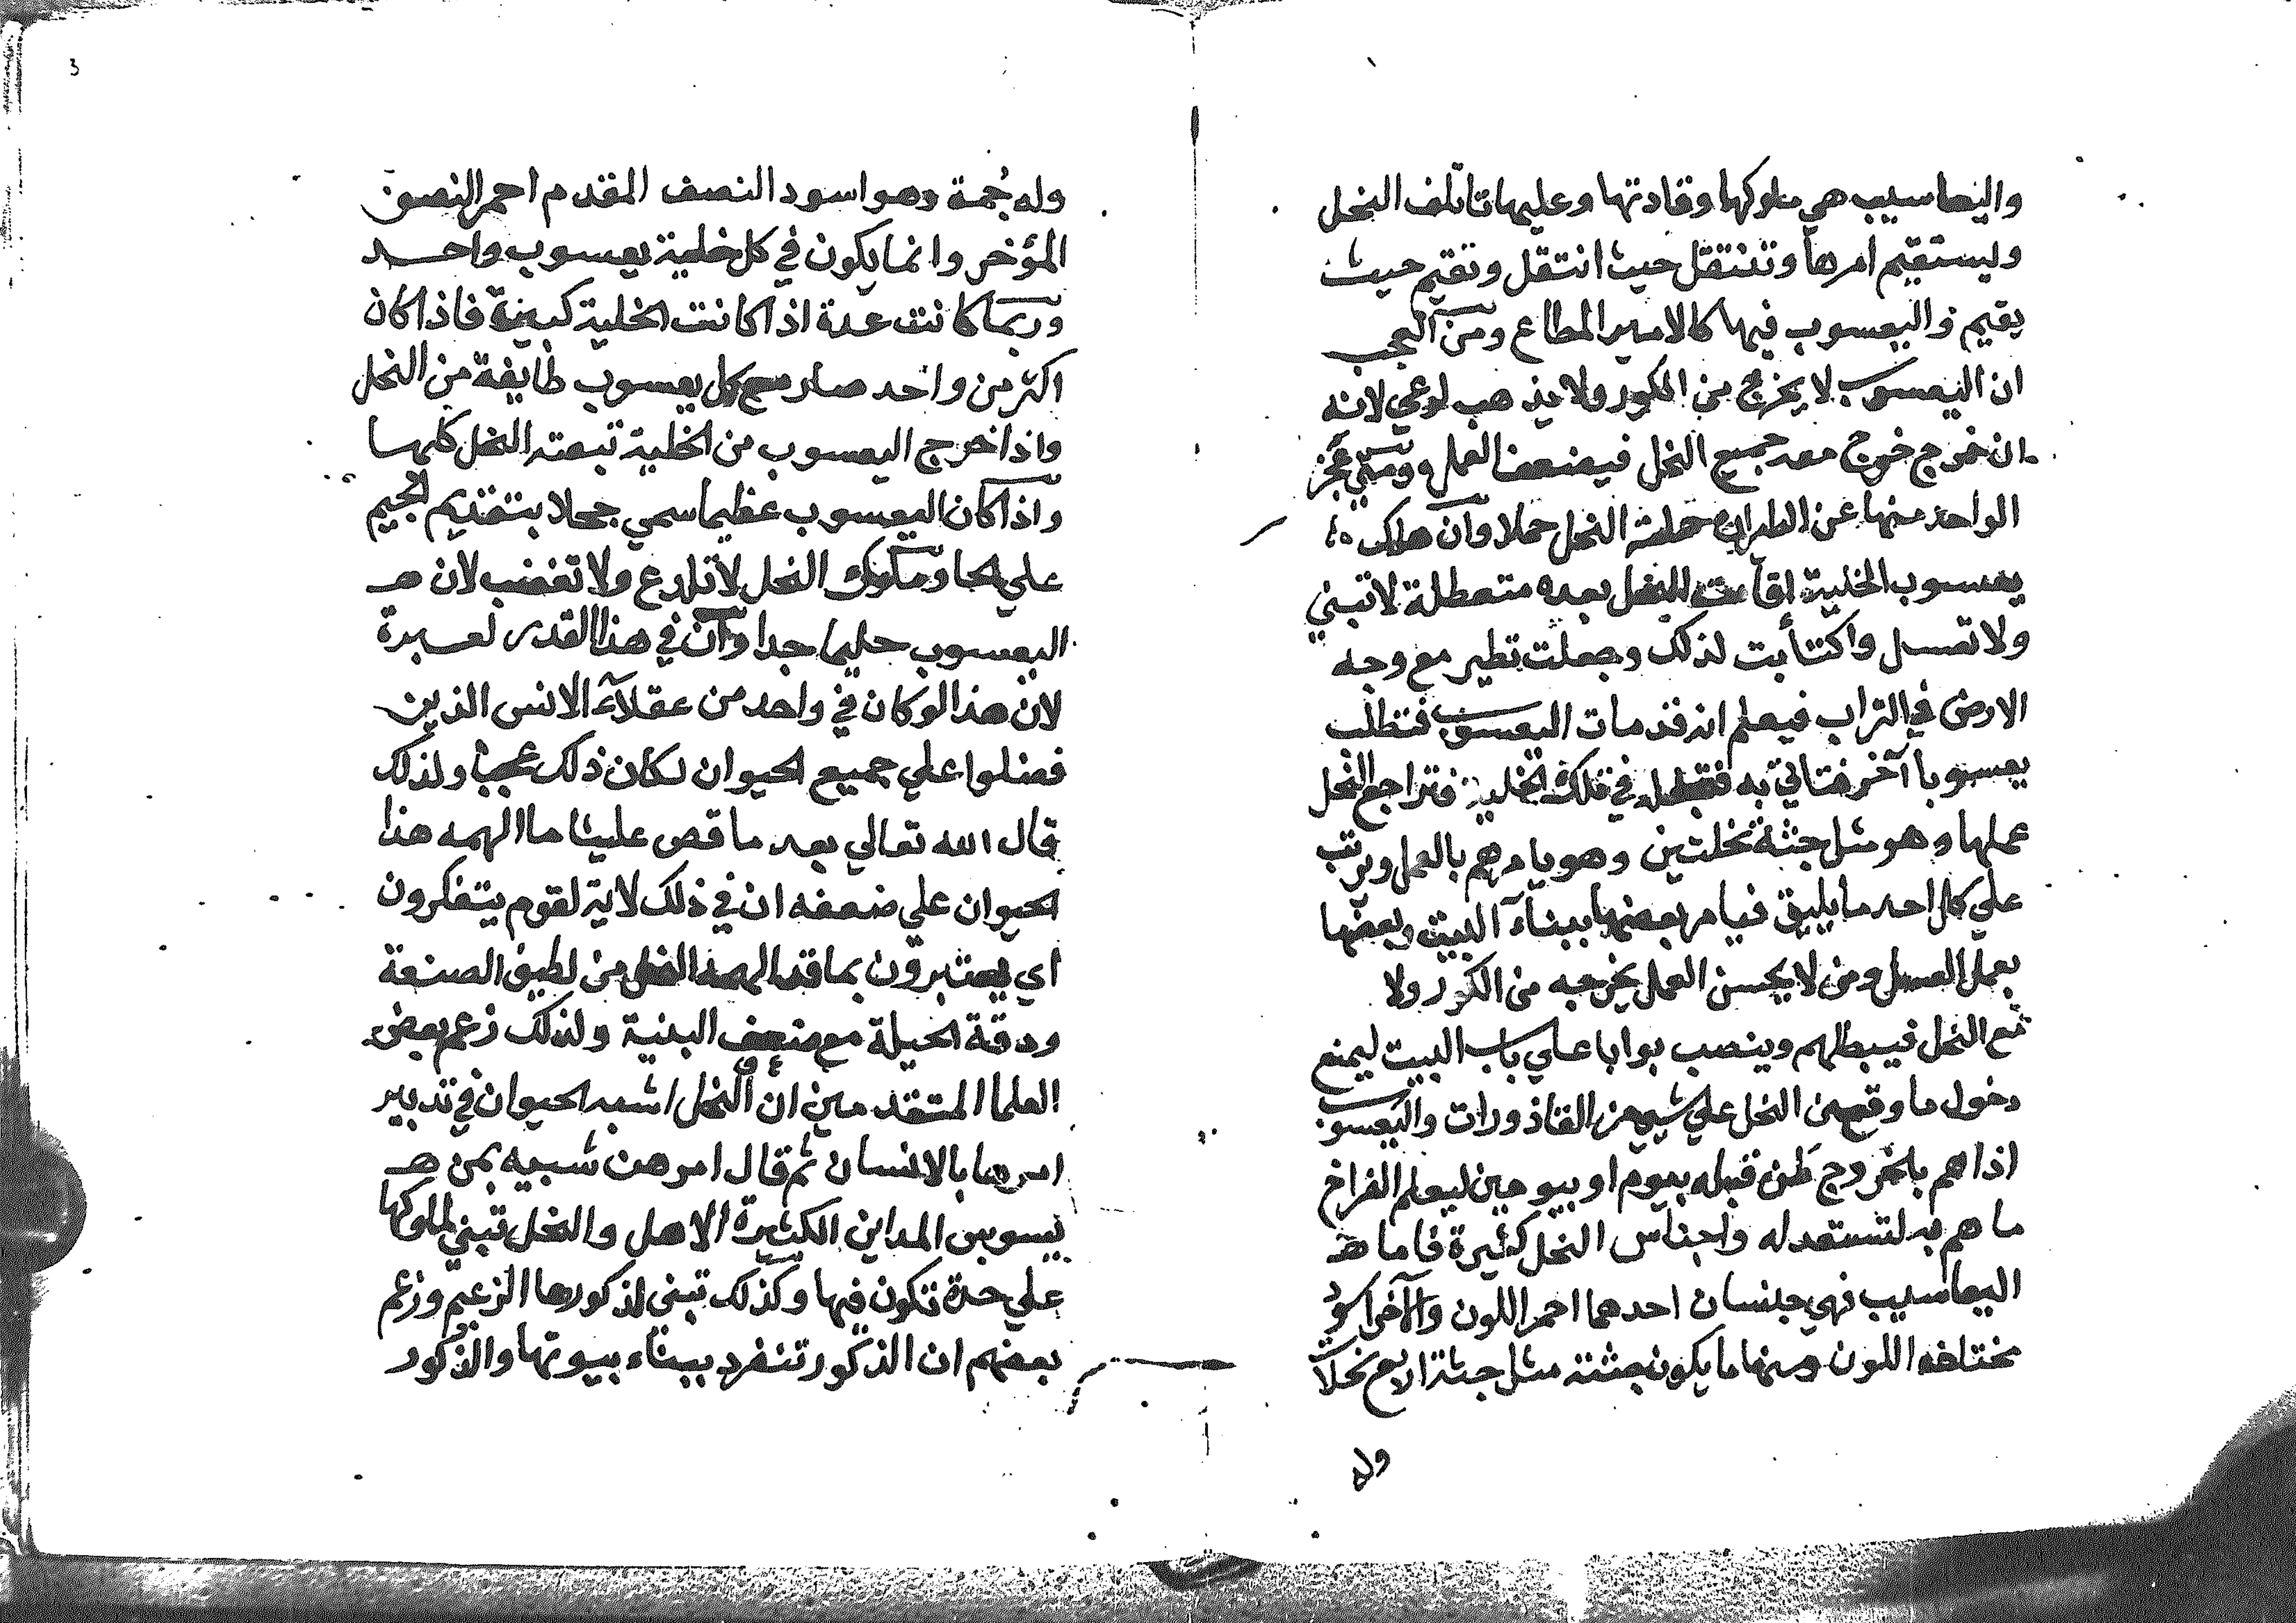 واليعاسيب هي ملوكها وقادتها وعليها تاتلف النحل
وليستقيم امرها وتنتقل حيث انتقل وتقيم حيث
يقيم واليعسوب فيها كالامير المطاع ومن العجب
ان اليعسوب لا يخرج من الكور ولا يذهب لوعي لانه
ان خرج خرج معه جميع النحل فيضعف العمل ومتي عجز
الواحد منها عن الطيران حملته النحل حملا وان هلك
يعسوب الخلية اقامت النحل بعده متعطلة لا تبني
ولا تعسل واكتأبت لذلك وجعلت تطير مع وجه
الارض في التراب فيعلم انه قد مات اليعسوب فتطلب
يعسوبا آخر فتاتي به فتجعله في تلك الخلية فتراجع النحل
عملها وهو مثل جثة نحلتين وهو يامرهم بالعمل ويرتب
علي كل احد ما يليق فيامر بعضها ببنآء البيت وبعضها
بعمل العسل ومن لا يحسن العمل يخرجه من الكور ولا
مع النحل فيبطلهم وينصب بوابا علي باب البيت ليمنع
دخول ما وقع من النحل علي شي من القاذورات واليعسوب
اذا هم بالخروج طن قبله بيوم او بيومين ليعلم الفراخ
ما هم به لتستعد له واجناس النحل كثيرة فاما هـ
اليعاسيب فهي جنسان احدهما احمر اللون والآخر اسود
مختلفه اللون ومنها ما يكون جثته مثل جثة اربع نحلات
وله
3
وله جُمة وهو اسود النصف المقدم احمر النصف
المؤخر وانما يكون في كل خلية يعسوب واحد
وربما كانت عدة اذا كانت الخلية كبيرة فاذا كان
اكثر من واحد صار مع كل يعسوب طايفة من النحل
واذا خرج اليعسوب من الخلية تبعته النحل كلها
واذا كان اليعسوب عظيما سمي جحلا بتقديم الجيم
علي الحا وملوك النحل لا تلدع ولا تغضب لان هـ
اليعسوب حليما جدا وان في هذا القدر لعبرة
لان هذا لو كان في واحد من عقلآء الانس الذين
فضلوا علي جميع الحيوان لكان ذلك عجبا ولذلك
قال الله تعالي بعد ما قص علينا ما الهمه هذا
الحيوان علي ضعفه ان في ذلك لاية لقوم يتفكرون
اي يعتبرون بما قد الهمه النحل من لطيف الصنعة
ودقة الحيلة مع ضعف البنية ولذلك زعم بعض
العلما المتقدمين ان النحل اشبه الحيوان في تدبير
امرها بالانسان ثم قال امرهن شبيه بمن هـ
يسوس المداين الكثيرة الاهل والنحل تبني لملوكها
علي حدة تكون فيها وكذلك تبني لذكورها الزعيم وزعم
بعضهم ان الذكور تنفرد ببناء بيوتها والذكور